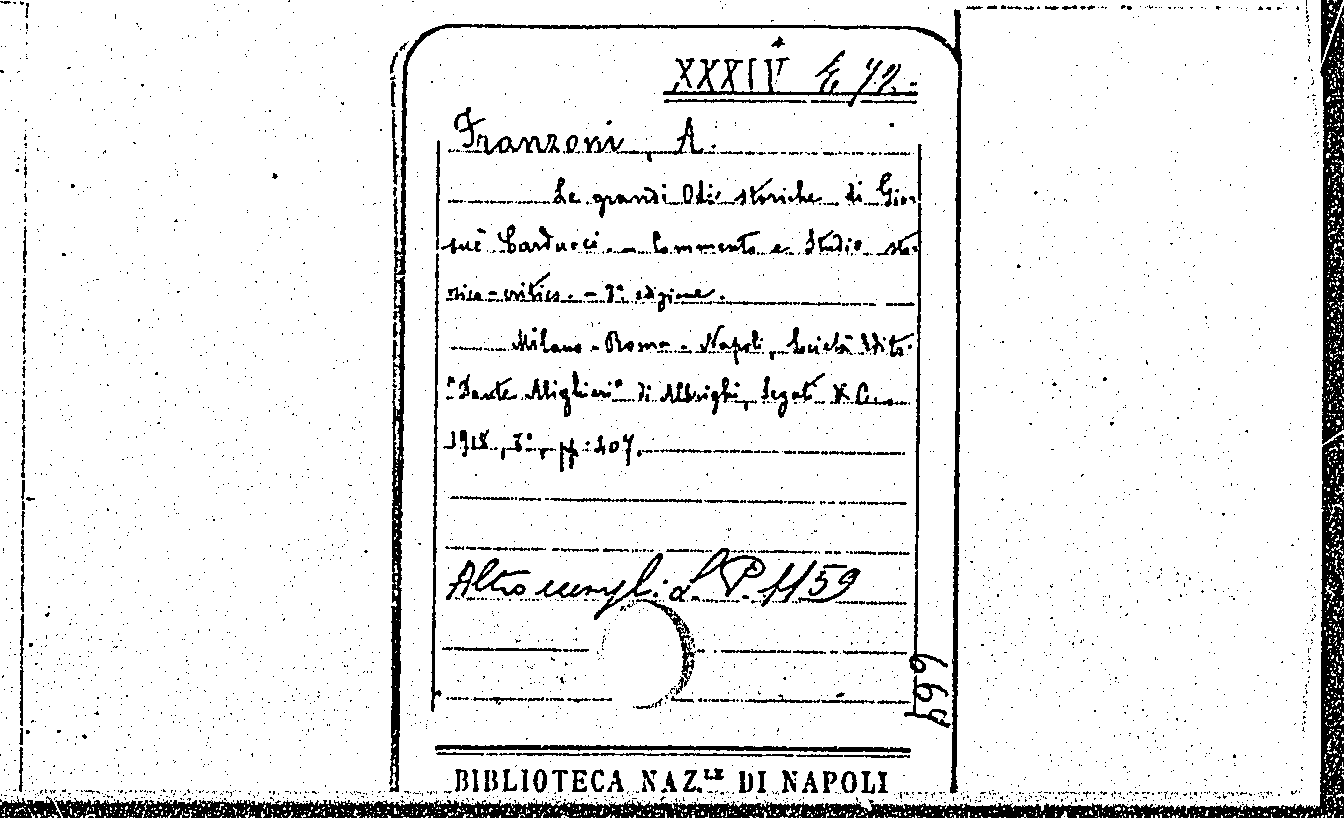 XXXIV E 72.
Franzoni, A.
Le grandi Odi storiche di Gio-
suè Carducci. - Commento e Studio sto-
rico-critico. - 3ª edizione.
Milano - Roma - Napoli, Società Edit.
"Dante Alighieri" di Albrighi, Segati & C.
1918, 8°, pp. 207.
Altro esempl: L. P. 1159
699
BIBLIOTECA NAZ.LE DI NAPOLI